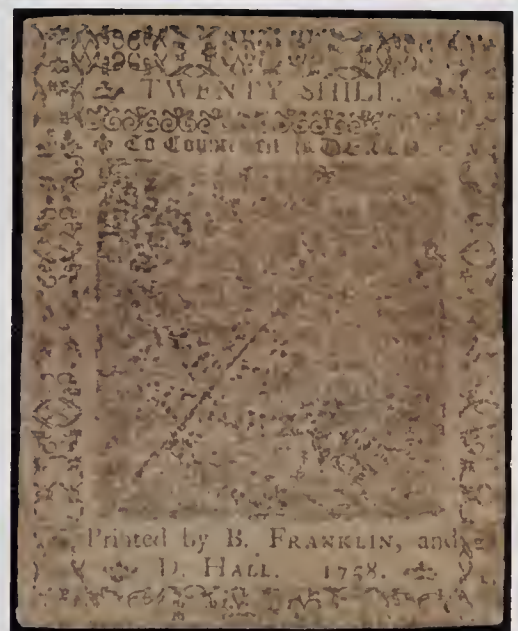 TWENTY SHILL.
To Counterfeit is DEATH
Printed by B. FRANKLIN, and
D. HALL. 1758.